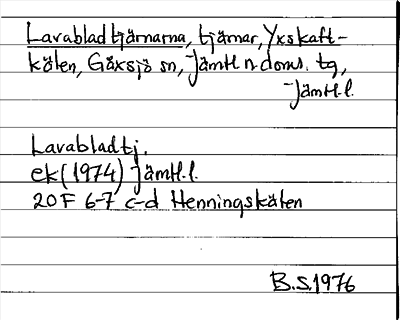 Lavabladtjärnarna, tjärnar, Yxskaft-
kälen, Gåxsjö sn, Jämtl. n. doms. tg,
Jämtl. l.
Lavabladtj.
ek (1974) Jämtl. l.
20F 6-7 c-d Henningskälen
B.S. 1976